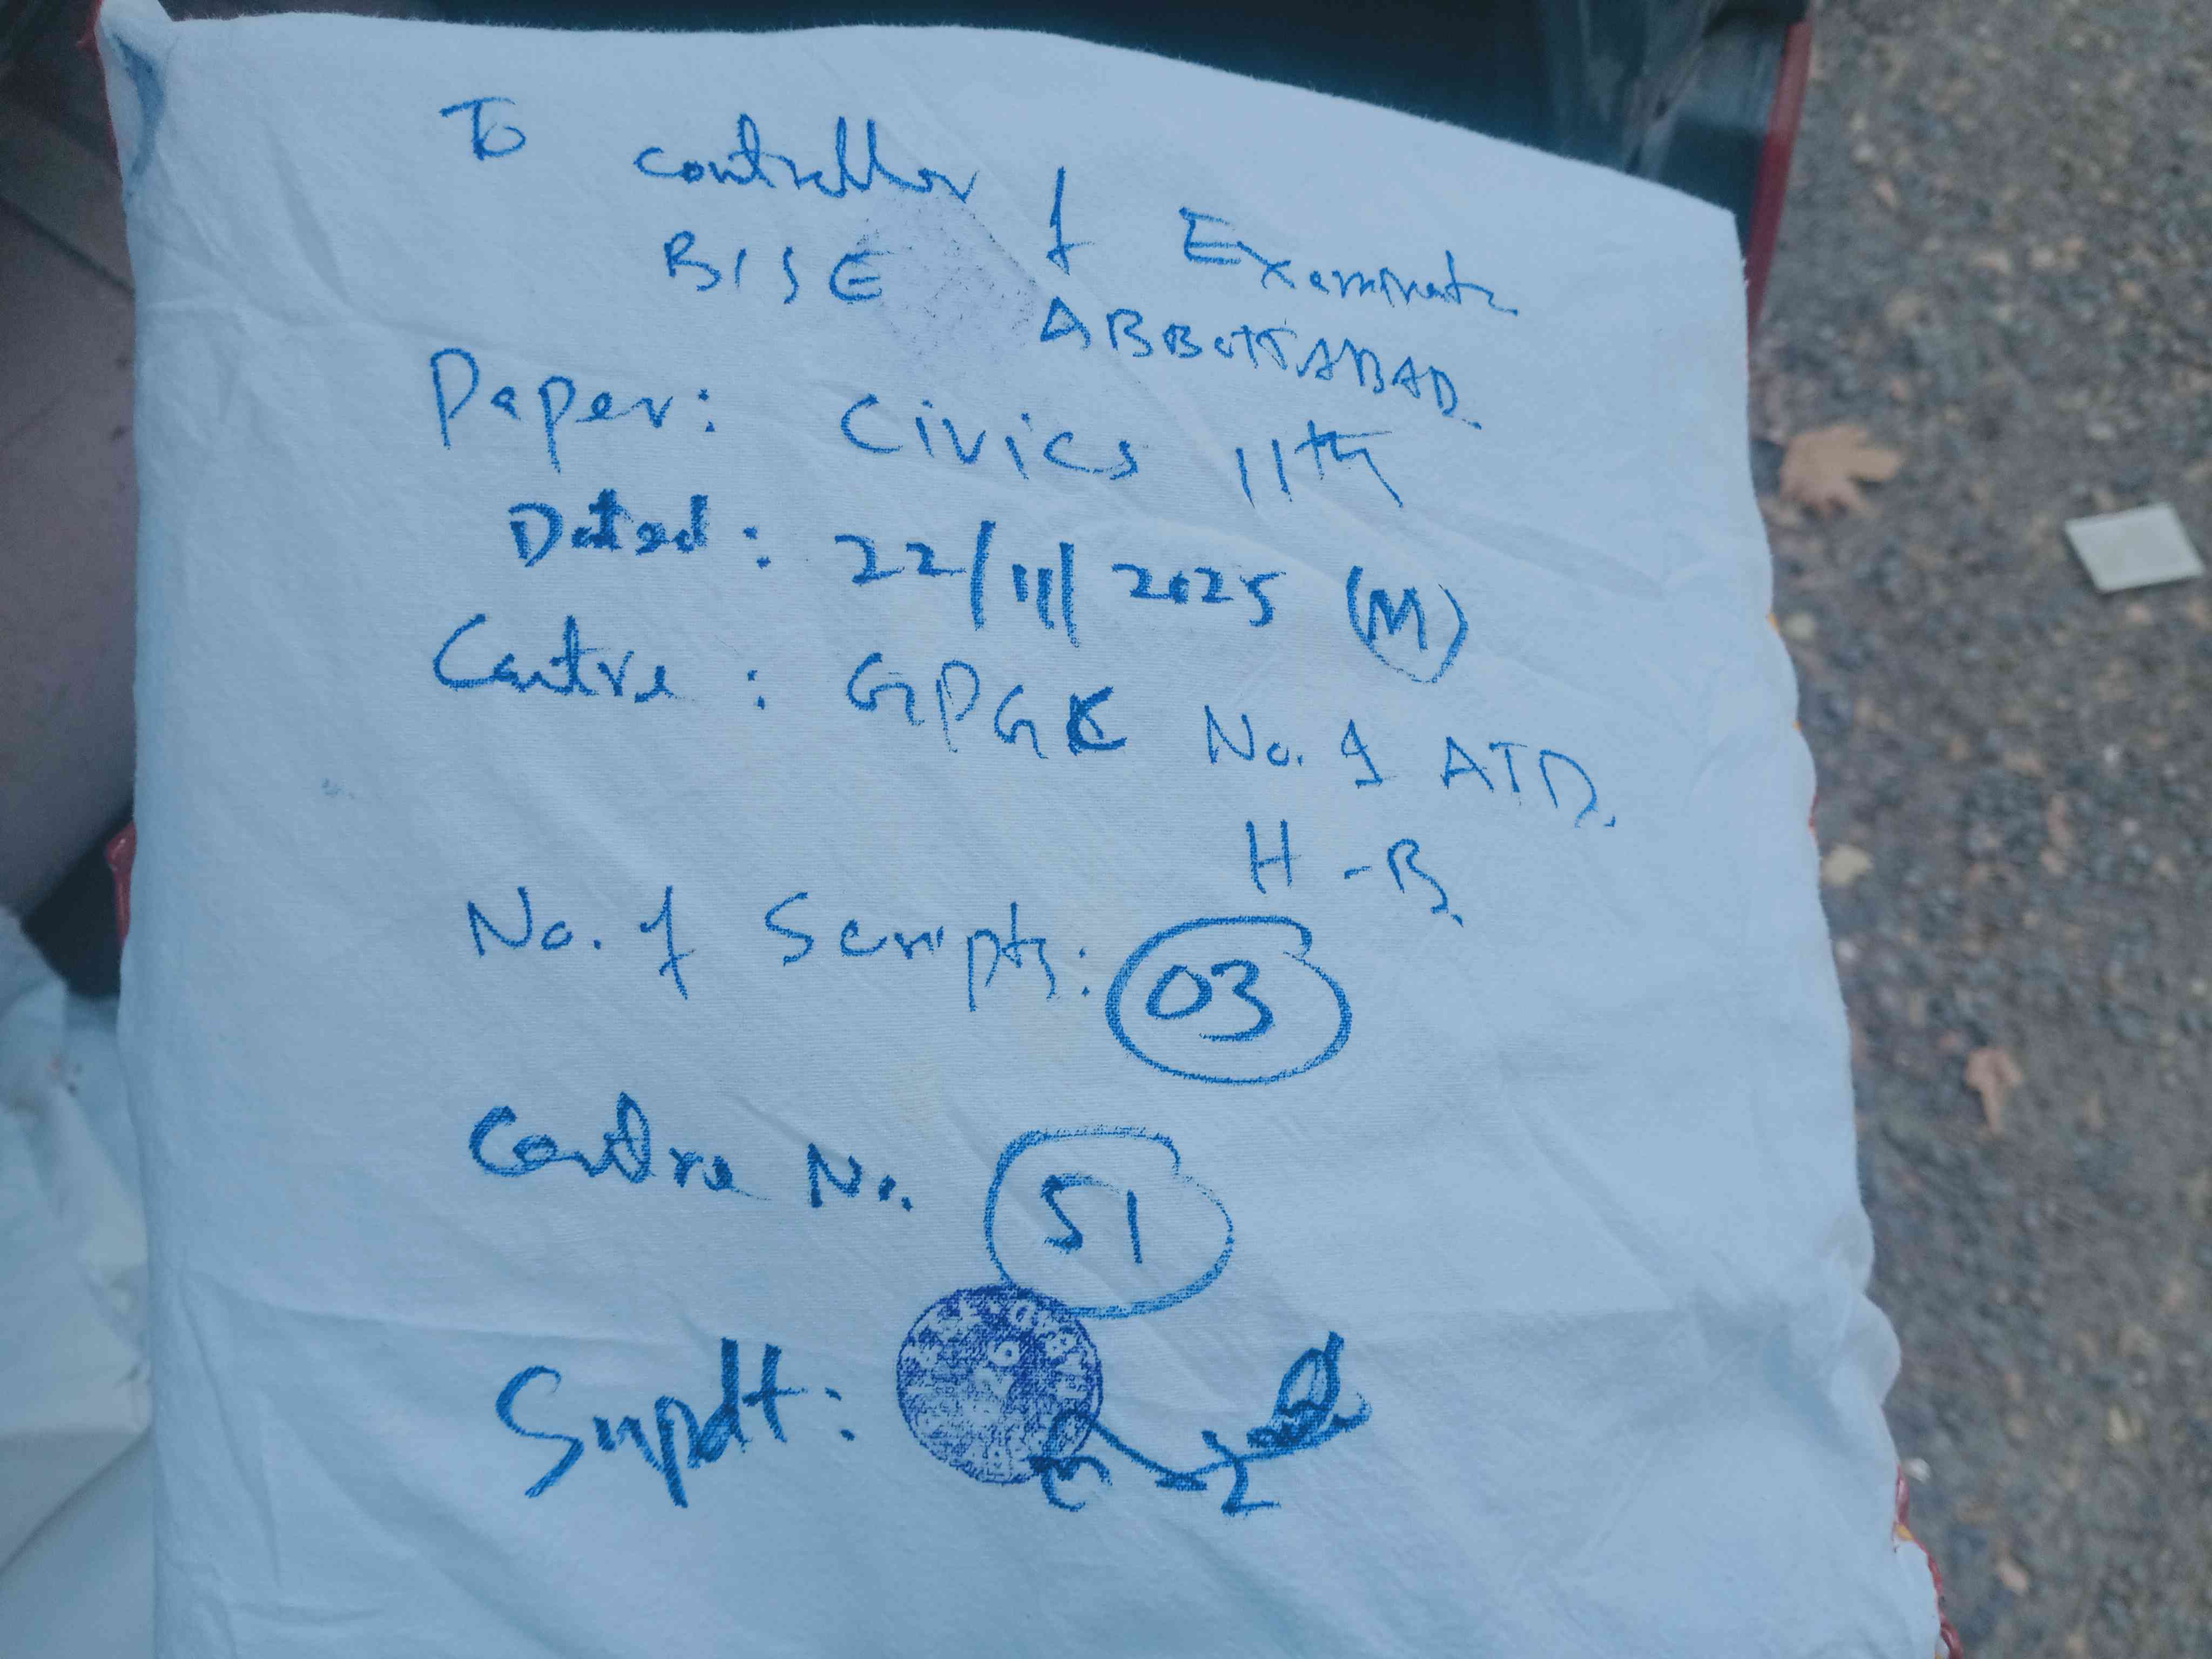 To
controller of Examinatn
BISE ABBOTTABAD.
Paper: Civics 11th
Dated: 22/11/2025 (M)
Centre: GPGC No. 1 ATD.
H-B
No. of Scripts: 03
Centre No. 51
Supdt: